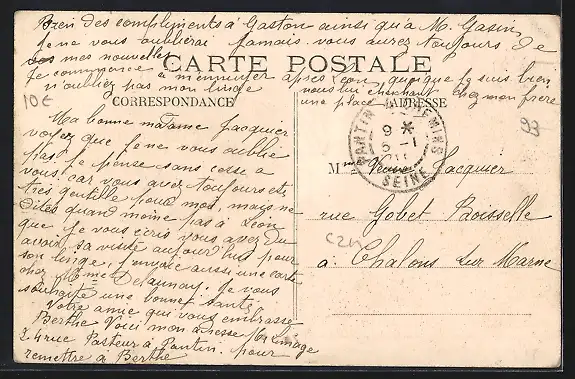 Bien des compliments a Gaston ainsi qu'a M. Gasin
je ne vous oublierai jamais vous aurez toujours de
vos mes nouvelles
CARTE POSTALE
Je commence a m'ennuyer apres Leon quoique je suis bien
n'oubliez pas mon linge
nous lui cherchons
une place
chez mon frère
10€
CORRESPONDANCE
ADRESSE
93
Ma bonne madame Jacquier
voyez que je ne vous oublie
pas je pense sans cesse a
vous, car vous avez toujours été
très gentille pour moi, mais ne
dites quand moine pas à Léon
que je vous écris vous avez du
avoir sa visite aujourd'hui pour
son linge, j'envoie aussi une carte
chez Mme Delaunay. Je vous
souhaite une bonne santé
Votre amie qui vous embrasse
Berthe Voici mon adresse Mr
24 rue Pasteur à Pantin. pour
remettre à Berthe
PANTIN
9 *
5 -1
SEINE
Mme Veuve Jacquier
rue Gobet Boisselle
a Chalons sur Marne